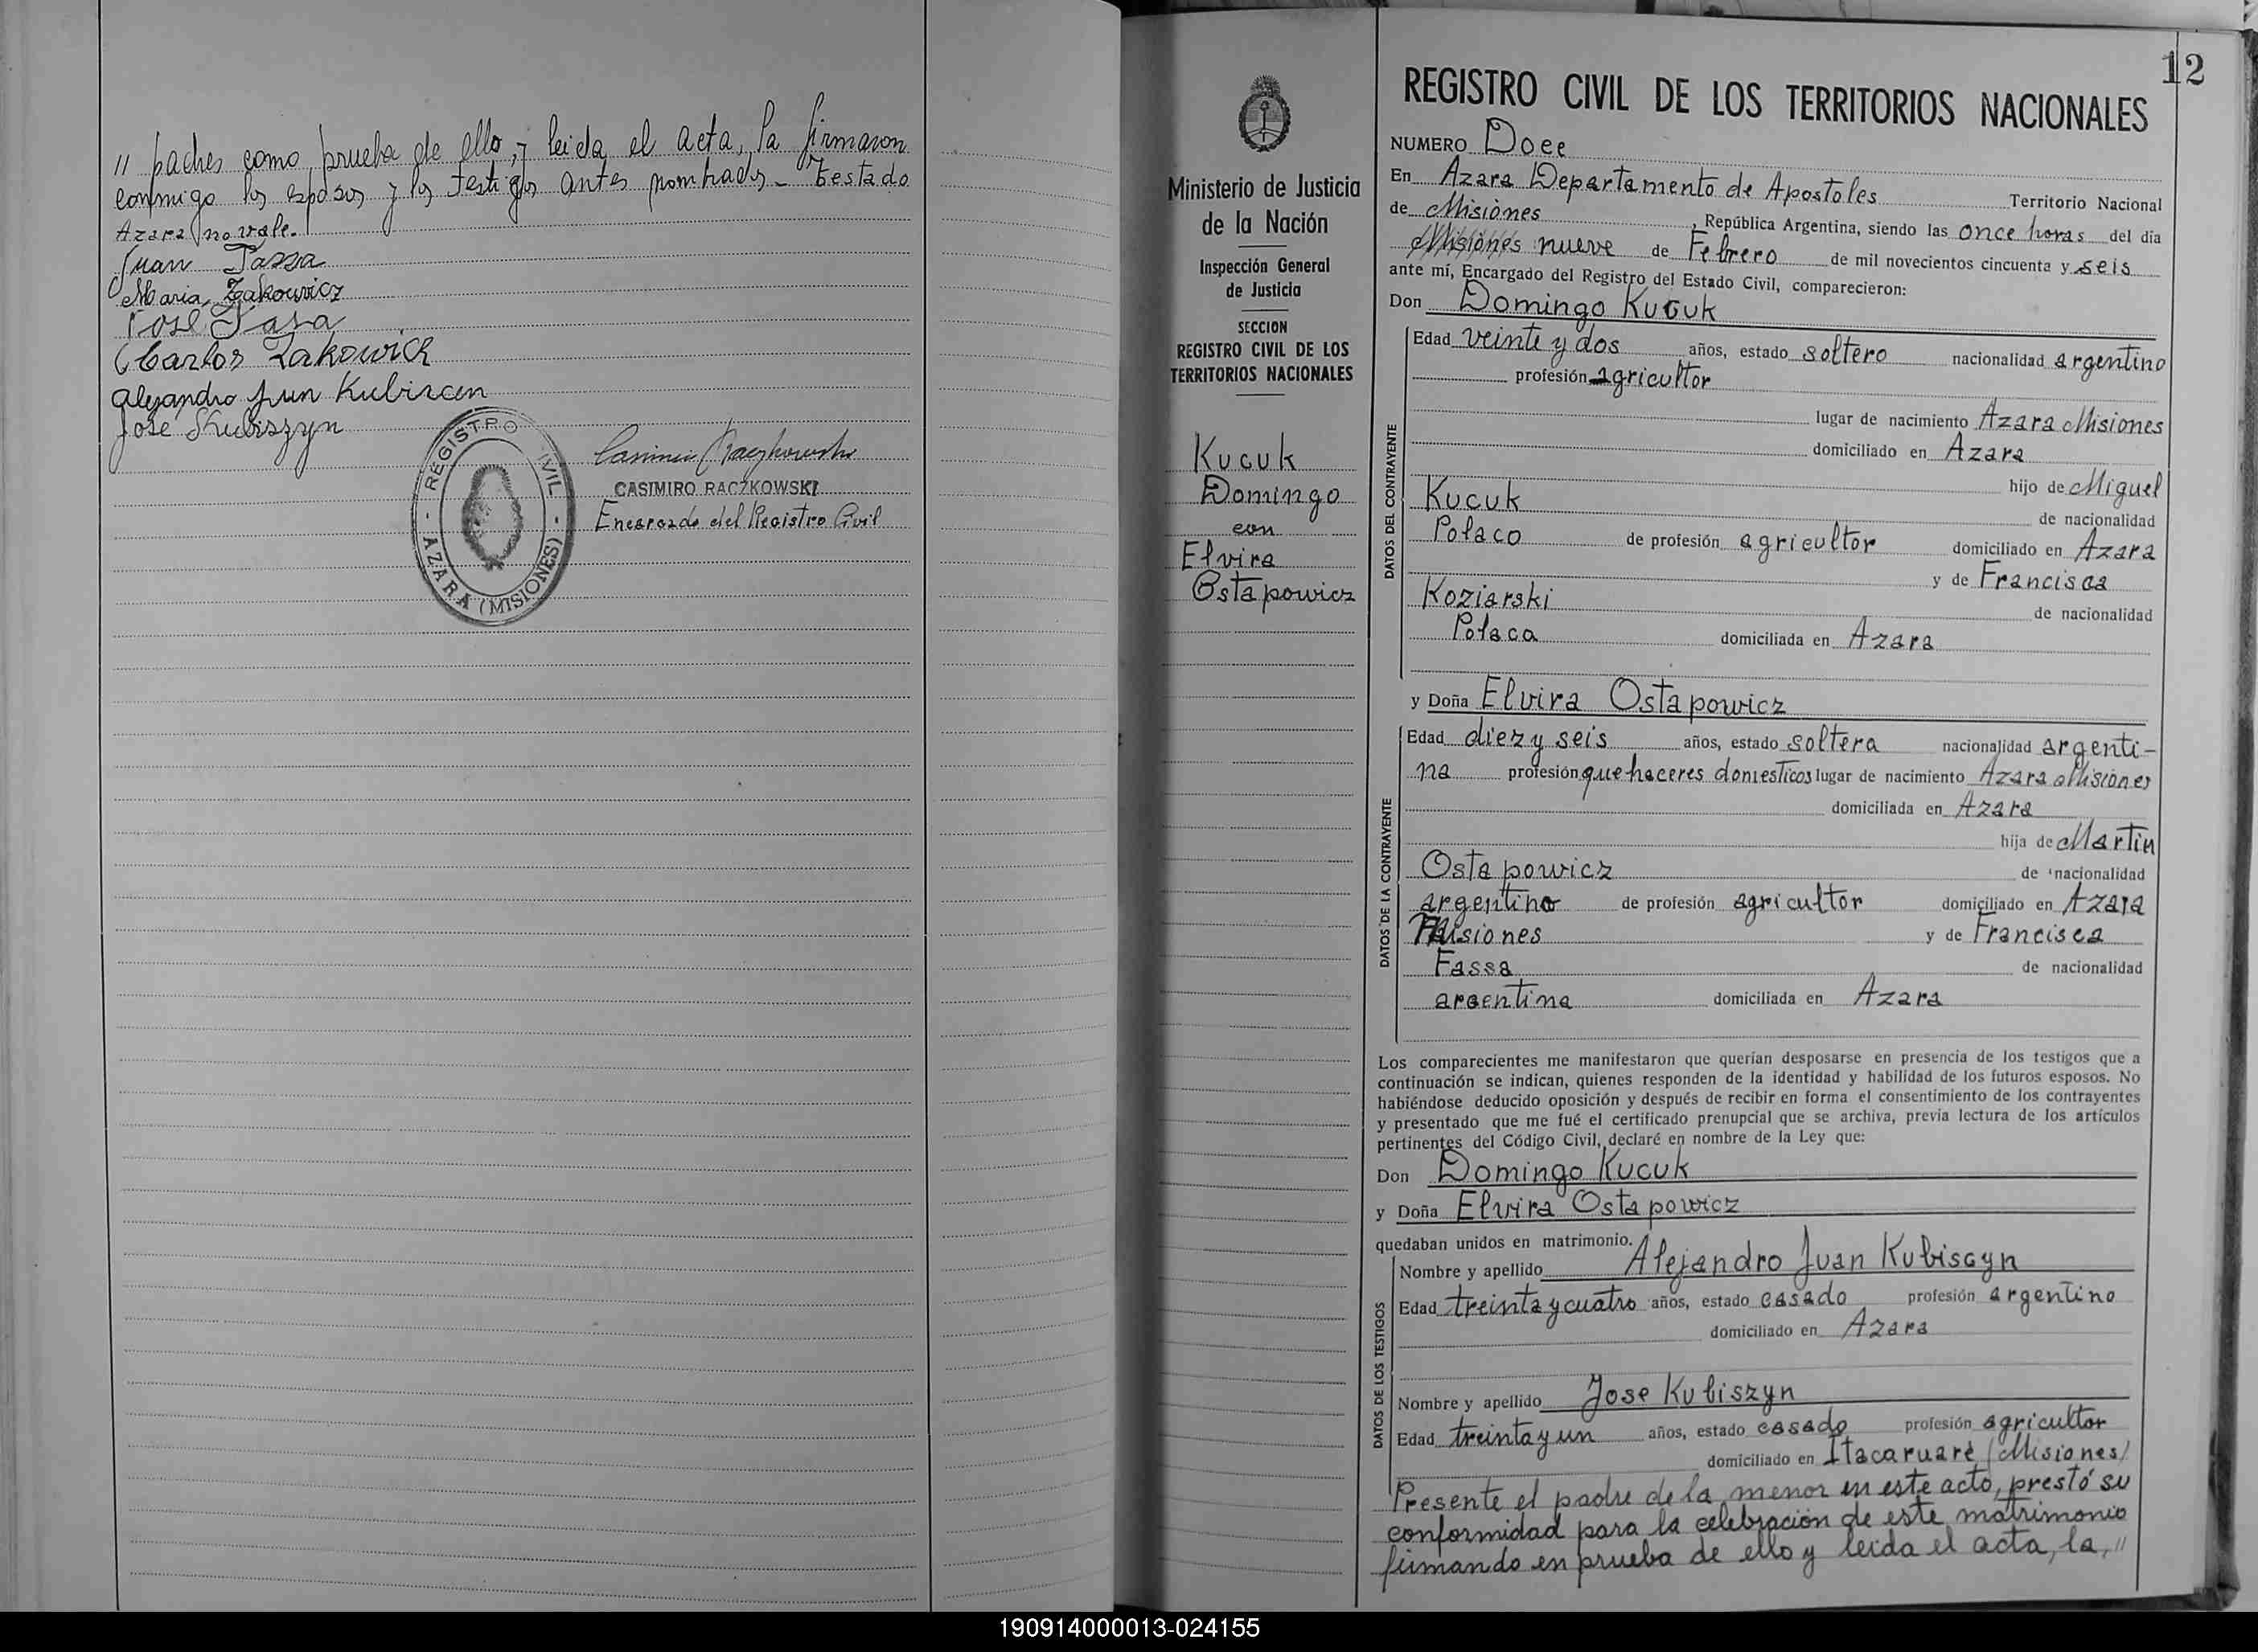 // padres como prueba de ello, y leida el acta, la firmaron
conmigo los esposos y los testigos antes nombrados - Testado
Azara no vale.
Juan Fassa
Maria Zakowicz
José Fasa
Carlos Zakowich
Alejandro Juan Kubiscen
José Kubiszyn
REGISTRO CIVIL
- AZARA (MISIONES) -
CASIMIRO RACZKOWSKI
Encargado del Registro Civil
12
Ministerio de Justicia
de la Nación
Inspección General
de Justicia
SECCION
REGISTRO CIVIL DE LOS
TERRITORIOS NACIONALES
Kucuk
Domingo
con
Elvira
Ostapowicz
REGISTRO CIVIL DE LOS TERRITORIOS NACIONALES
NUMERO Doce
En Azara Departamento de Apostoles Territorio Nacional
de Misiones, República Argentina, siendo las once horas del día
Misiones nueve de Febrero de mil novecientos cincuenta y seis
ante mí, Encargado del Registro del Estado Civil, comparecieron:
Don Domingo Kucuk
DATOS DEL CONTRAYENTE
Edad veinte y dos años, estado soltero nacionalidad argentino
profesión agricultor
lugar de nacimiento Azara Misiones
domiciliado en Azara
hijo de Miguel
Kucuk de nacionalidad
Polaco de profesión agricultor domiciliado en Azara
y de Francisca
Koziarski de nacionalidad
Polaca domiciliada en Azara
y Doña Elvira Ostapowicz
DATOS DE LA CONTRAYENTE
Edad diez y seis años, estado soltera nacionalidad argenti-
na profesión que haceres domesticos lugar de nacimiento Azara Misiones
domiciliada en Azara
hija de Martin
Ostapowicz de nacionalidad
argentino de profesión agricultor domiciliado en Azara
Misiones y de Francisca
Fassa de nacionalidad
argentina domiciliada en Azara
Los comparecientes me manifestaron que querían desposarse en presencia de los testigos que a
continuación se indican, quienes responden de la identidad y habilidad de los futuros esposos. No
habiéndose deducido oposición y después de recibir en forma el consentimiento de los contrayentes
y presentado que me fué el certificado prenupcial que se archiva, previa lectura de los artículos
pertinentes del Código Civil, declaré en nombre de la Ley que:
Don Domingo Kucuk
y Doña Elvira Ostapowicz
quedaban unidos en matrimonio.
DATOS DE LOS TESTIGOS
Nombre y apellido Alejandro Juan Kubiscyn
Edad treinta y cuatro años, estado casado profesión argentino
domiciliado en Azara
Nombre y apellido Jose Kubiszyn
Edad treinta y un años, estado casado profesión agricultor
domiciliado en Itacaruaré (Misiones)
Presente el padre de la menor en este acto, prestó su
conformidad para la celebración de este matrimonio
firmando en prueba de ello y leida el acta, la, //
190914000013-024155